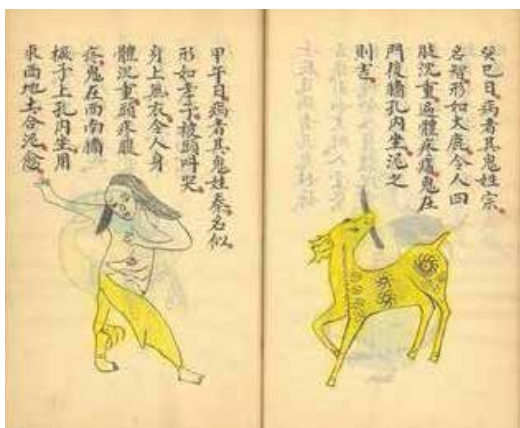 癸巳日病者其鬼姓宗
名智形如大鹿令人四
肢沉重遍體疼痛鬼在
門後牆孔內坐泥之
則吉
甲午日病者其鬼姓秦名似
形如孝子被頭叫哭
身上無衣令人身
體沉重頭疼腹
疼鬼在西南牆
橛子上孔內生用
東西地土合泥愈